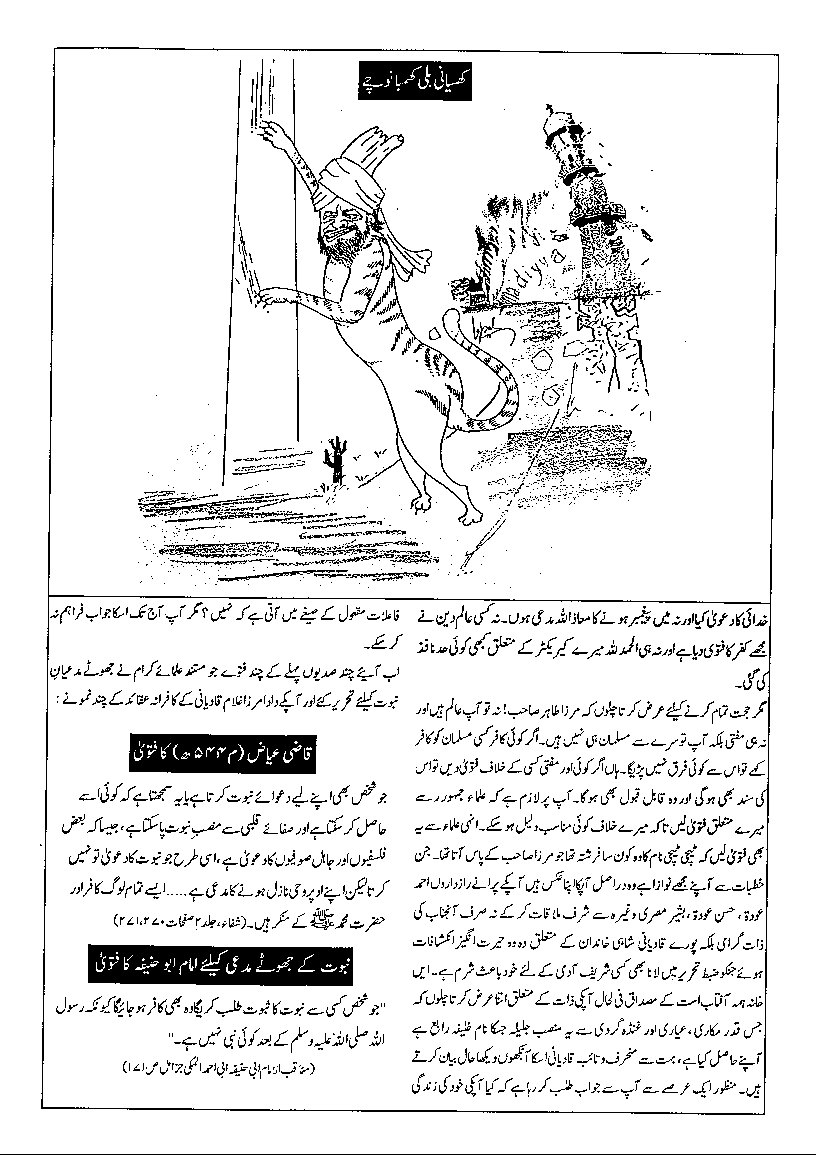 کھسیانی بلی کھمبا نوچے
adiyya
خدائی کا دعویٰ کیا اور نہ میں پیغمبر ہونے کا معاذ اللہ مدعی ہوں۔ نہ کسی عالم دین نے
مجھے کفر کا فتویٰ دیا ہے اور نہ ہی الحمد للہ میرے کیریکٹر کے متعلق کبھی کوئی حد نافذ
کی گئی۔
مگر حجت تمام کرنے کیلئے عرض کرتا چلوں کہ مرزا طاہر صاحب! نہ تو آپ عالم ہیں اور
نہ ہی مفتی بلکہ آپ تو سرے سے مسلمان ہی نہیں ہیں۔ اگر کوئی کافر کسی مسلمان کو کافر
کہے تو اس سے کوئی فرق نہیں پڑیگا۔ ہاں اگر کوئی اور مفتی کسی کے خلاف فتویٰ دیں تو اس
کی سند بھی ہوگی اور وہ قابل قبول بھی ہوگا۔ آپ پر لازم ہے کہ علماء جمہور سے
میرے متعلق فتویٰ لیں تاکہ میرے خلاف کوئی مناسب دلیل ہو سکے۔ انہی علماء سے یہ
بھی فتویٰ لیں کہ ٹیچی ٹیچی نام کا وہ کون سا فرشتہ تھا جو مرزا صاحب کے پاس آتا تھا۔ جن
خطابات سے آپنے مجھے نوازا ہے وہ دراصل آپکا اپنا عکس ہیں آپکے پرانے رازداروں احمد
عودۃ، حسن عودۃ، بشیر مصری وغیرہ سے شرف ملاقات کر کے نہ صرف آنجناب کی
ذات گرامی بلکہ پورے قادیانی شاہی خاندان کے متعلق وہ وہ حیرت انگیز انکشافات
ہوئے جنکو ضبط تحریر میں لانا بھی کسی شریف آدمی کے لئے خود باعث شرم ہے۔ ایں
خانہ ہمہ آفتاب است کے مصداق فی الحال آپکی ذات کے متعلق اتنا عرض کرتا چلوں کہ
جس قدر مکاری، عیاری اور غنڈہ گردی سے یہ منصب جلیلہ جسکا نام خلیفہ رابع ہے
آپنے حاصل کیا ہے، بہت سے منحرف و تائب قادیانی اسکا آنکھوں دیکھا حال بیان کرتے
ہیں۔ منظور ایک عرصے سے آپ سے جواب طلب کر رہا ہے کہ کیا آپکی خود کی زندگی
فاعلات مفعول کے صیغے میں آتی ہے کہ نہیں؟ مگر آپ آج تک اسکا جواب فراہم نہ
کر سکے۔
اب آیئے چند صدیوں پہلے کے چند فتوے جو مستند علمائے کرام نے جھوٹے مدعیانِ
نبوت کیلئے تحریر کئے اور آپکے دادا مرزا غلام قادیانی کے کافرانہ عقائد کے چند نمونے:
قاضی عیاض (م ۵۴۴ھ) کا فتویٰ
جو شخص بھی اپنے لیے دعوائے نبوت کرتا ہے یا یہ سمجھتا ہے کہ کوئی اسے
حاصل کر سکتا ہے اور صفائے قلبی سے منصب نبوت پا سکتا ہے، جیسا کہ بعض
فلسفیوں اور جاہل صوفیوں کا دعویٰ ہے، اسی طرح جو نبوت کا دعویٰ تو نہیں
کرتا لیکن اپنے اوپر وحی نازل ہونے کا مدعی ہے ..... ایسے تمام لوگ کافر اور
حضرت محمد ﷺ کے منکر ہیں۔ (شفاء، جلد ۲ صفحات ۲۷۰، ۲۷۱)
نبوت کے جھوٹے مدعی کیلئے امام ابو حنیفہ کا فتویٰ
"جو شخص کسی سے نبوت کا ثبوت طلب کریگا وہ بھی کافر ہو جائیگا کیونکہ رسول
اللہ صلی اللہ علیہ وسلم کے بعد کوئی نبی نہیں ہے۔"
(مناقب از امام ابی حنیفہ ابی احمد المکی جز اول ص ۱۷۱)